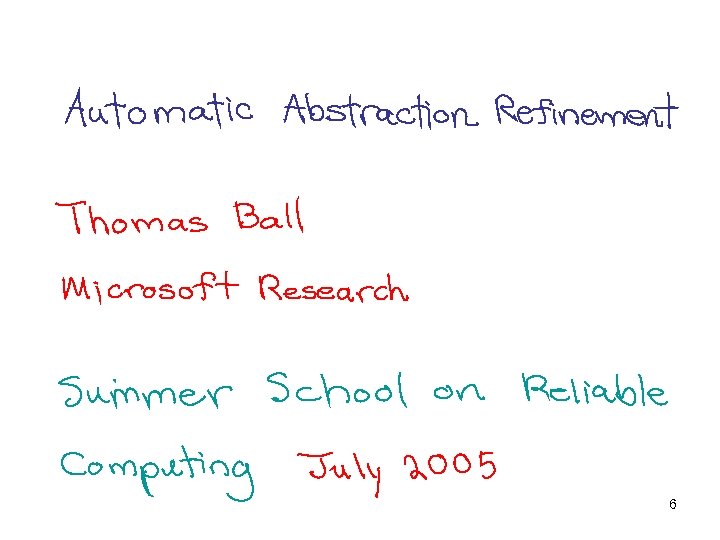 Automatic Abstraction Refinement
Thomas Ball
Microsoft Research
Summer School on Reliable
Computing July 2005
6